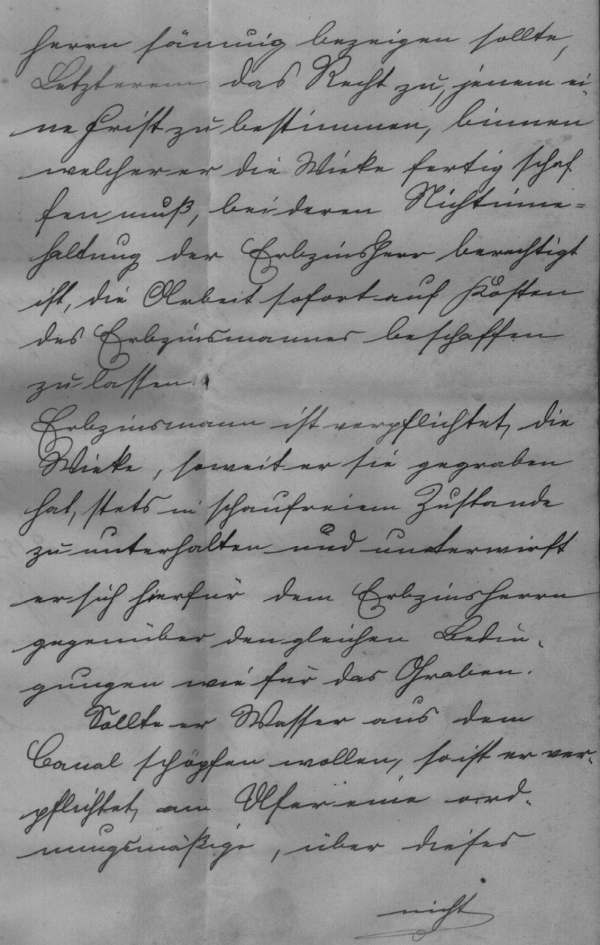 herrn säumig bezeigen sollte,
Letzterem das Recht zu, jenem ei-
ne Frist zu bestimmen, binnen
welcher er die Wieke fertig schaf
fen muß, bei deren Nichtinne=
haltung der Erbzinsherr berechtigt
ist, die Arbeit sofort auf Kosten
des Erbzinsmannes beschaffen
zu lassen.
Erbzinsmann ist verpflichtet, die
Wieke, soweit er sie gegraben
hat, stets in schaufreiem Zustande
zu unterhalten und unterwirft
er sich hierfür dem Erbzinsherrn
gegenüber den gleichen Bedin-
gungen wie für das Graben.
Sollte er Wasser aus dem
Canal schöpfen wollen, so ist er ver-
pflichtet, am Ufer eine ord-
nungsmäßige, über dieses
nicht